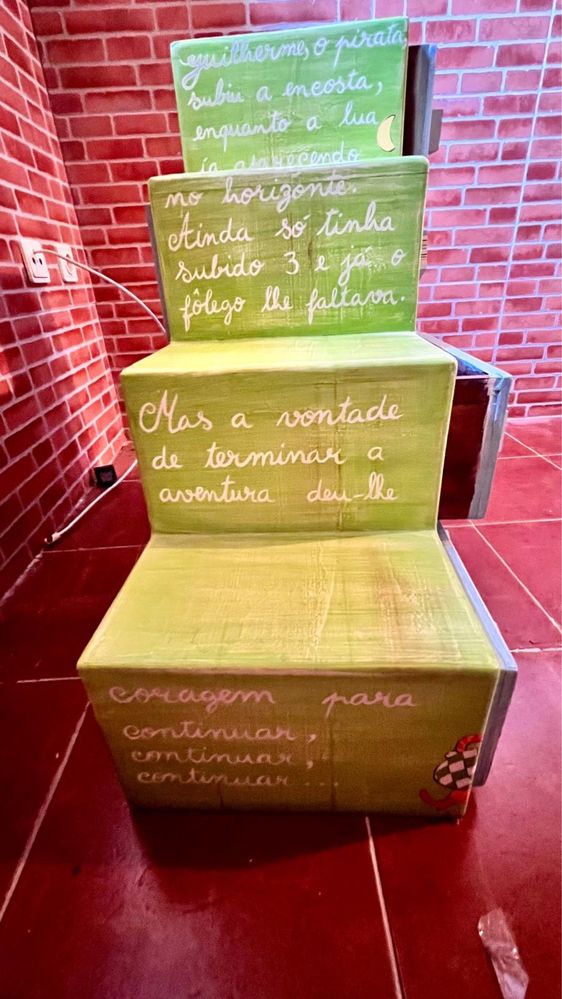 guilherme, o pirata
subiu a encosta,
enquanto a lua
ía aparecendo
no horizonte.
Ainda só tinha
subido 3 e já o
fôlego lhe faltava.
Mas a vontade
de terminar a
aventura deu-lhe
coragem para
continuar,
continuar,
continuar...